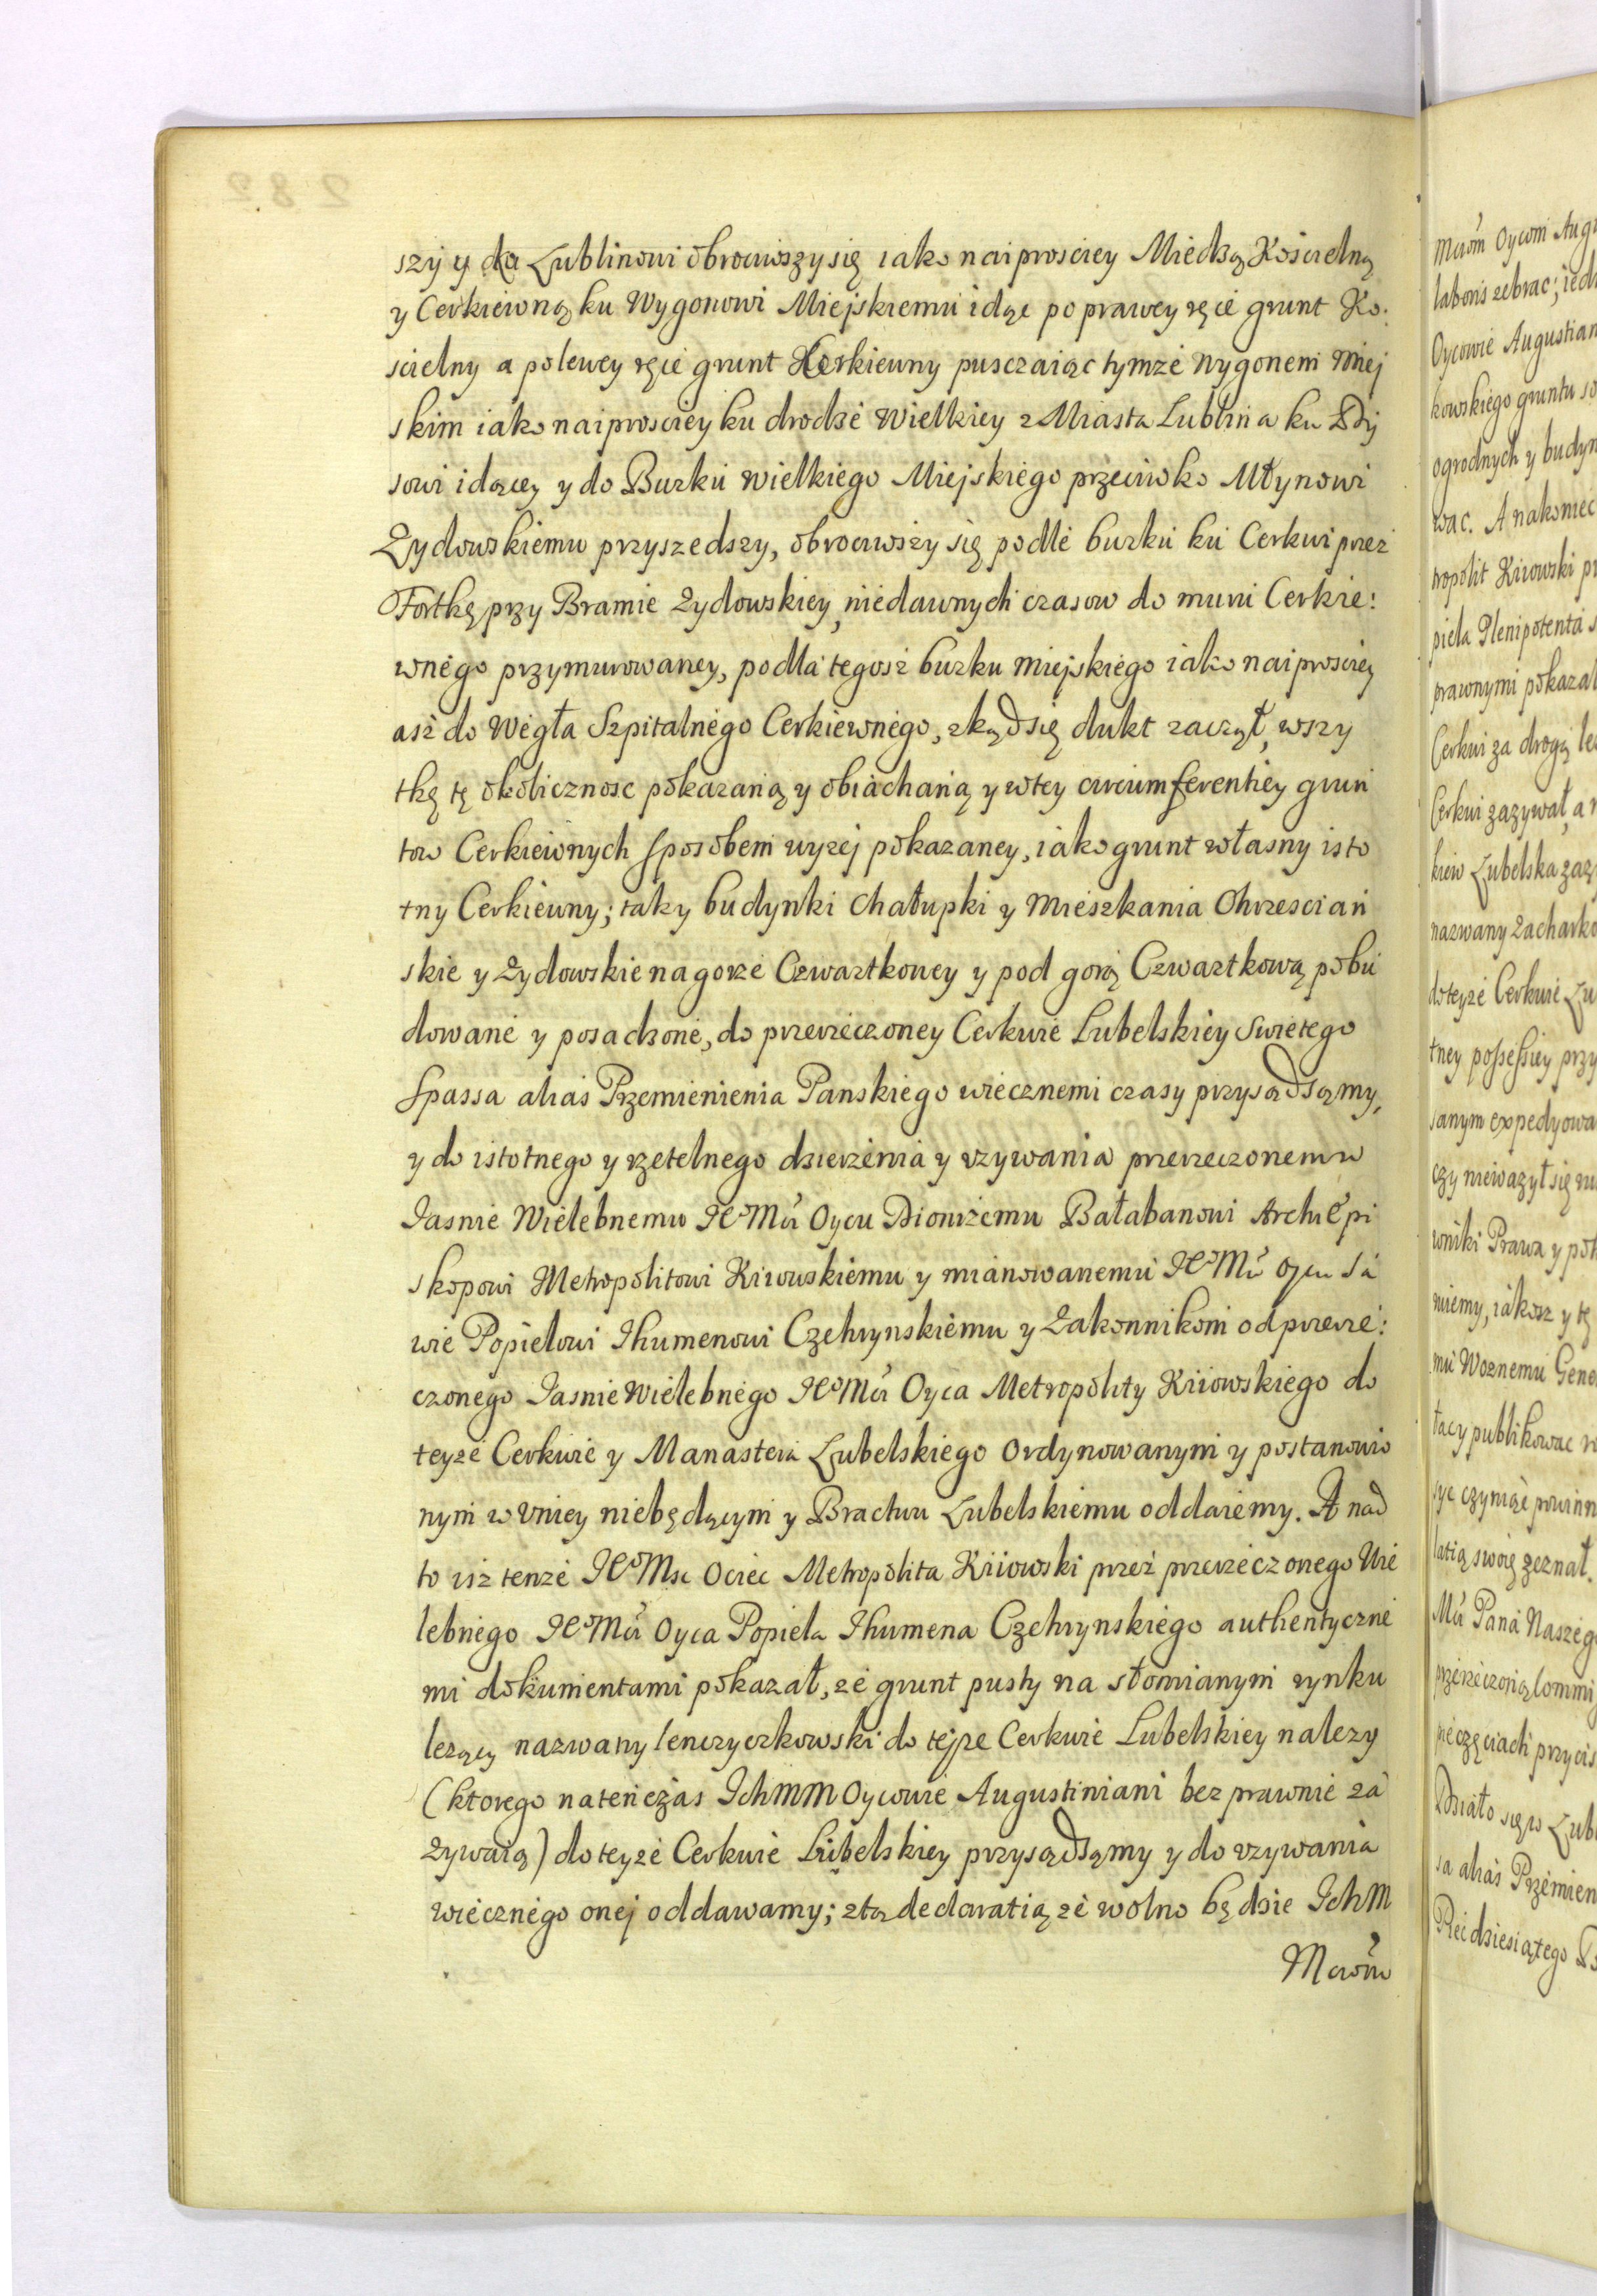 szy y ku Lublinowi obrociwszy się iako naiprosciey Miedzą Koscielną
y Cerkiewną ku Wygonowi Miejskiemu idąc po prawey ręce grunt Ko:
scielny a polewey ręce grunt Cerkiewny pusczaiąc tymze wygonem Miej
skim iako naiprosciey ku drodze Wielkiey z Miasta Lublina ku Dy
sowi idącey y do Burku wielkiego Miejskiego przeciwko Młynowi
Zydowskiemu przyszedszy, obrociwszy się podle burku ku Cerkwi przez
Fortkę przy Bramie Zydowskiey niedawnych czasow do muru Cerkie:
wnego przymurowaney, podla tegosz burku miejskiego iako naiprosciey
asz do Węgła Szpitalnego Cerkiewnego, zkąd się dukt zaczął, wszy
tkę tę okolicznosc pokazaną y obiachaną y wtey circumferentiey grun
tow Cerkiewnych sposobem wyzej pokazaney, iako grunt własny isto
tny Cerkiewny; tak y budynki chałupki y Mieszkania Chrzescian
skie y Zydowskie na gorze Czwartkowey y pod gorą Czwartkową pobu
dowane y posadzone, do przerzeczoney Cerkwie Lubelskiey Swietego
Spassa alias Przemienienia Panskiego wiecznemi czasy przysądzamy,
y do istotnego y rzetelnego dzierzenia y vzywania przerzeczonemu
Iasnie Wielebnemu IeoMci Oycu Dionizemu Bałabanowi Archiepi
skopowi Metropolitowi Kiiowskiemu y mianowanemu IeoMci Oycu Sa
wie Popielowi Ihumenowi Czehrynskiemu y Zakonnikom od przerze:
czonego Iasnie Wielebnego IeoMci Oyca Metropolity Kiiowskiego do
teyze Cerkwie y Manastera Lubelskiego Ordynowanym y postanowio
nym w Vniey niebędącym y Bractwu Lubelskiemu oddaiemy. A nad
to isz tenze IeoMsc Ociec Metropolita Kiiowski przez przerzeczonego Wie
lebnego IeoMci Oyca Popiela Ihumena Czehrynskiego authentyczne
mi dokumentami pokazał, ze grunt pusty na słomianym rynku
lezący nazwany lenczyczkowski do tejze Cerkwie Lubelskiey nalezy
(ktorego natenczas IchMM Oycowie Augustiniani bezprawnie za
zywaią) do teyze Cerkwie Lubelskiey przysądzamy y do vzywania
wiecznego onej oddawamy; ztą declaratią ze wolno będzie IchM
Mciom
Mciom Oycom
zebrac;
Oycowie
kowskiego gruntu
ogrodnych y
wac. A nakoniec
tropolit Kiiowski
piela Plenipotenta
prawnymi
Cerkwi za drogą
Cerkwi zazywał,
kiew Lubelska
nazwany
doteyze Cerkwie
tney possessiey
sanym
czy niewazył się
wniki Prawa y
miemy, iakosz y tę
mu Woznemu
publikowac
syc czyniąc
latią swoię zeznał.
Mci Pana Naszego
przerzeczoną
pieczęciach
Działo się w
sa alias
Piecdziesiątego